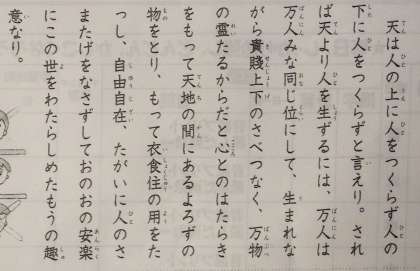 天は人の上に人をつくらず人の
下に人をつくらずと言えり。され
ば天より人を生ずるには、万人は
万人みな同じ位にして、生まれな
がら貴賤上下のさべつなく、万物
の霊たるからだと心とのはたらき
をもって天地の間にあるよろずの
物をとり、もって衣食住の用をた
っし、自由自在、たがいに人のさ
またげをなさずしておのおの安楽
にこの世をわたらしめたもうの趣
意なり。